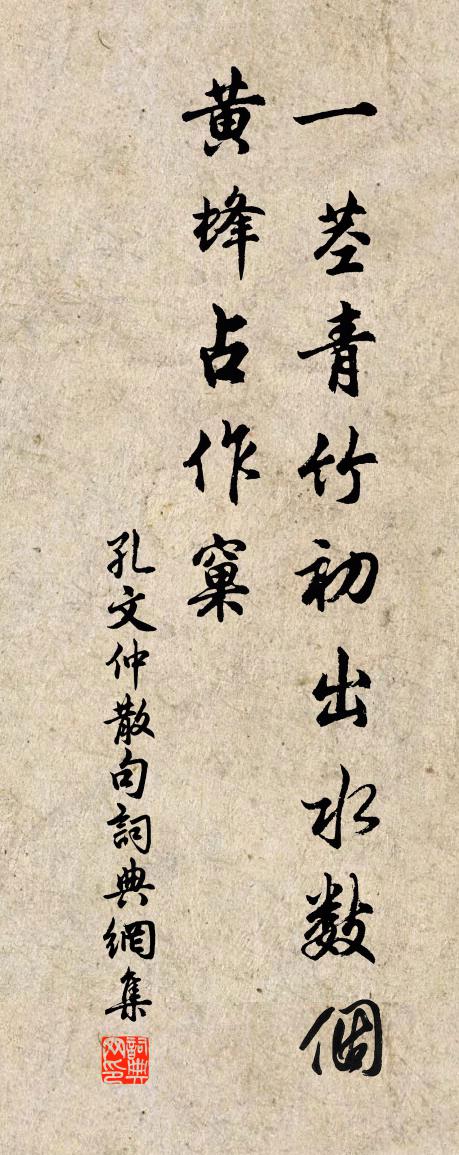 一茎青竹初出水數個
黃蜂占作窠
孔文仲散句詞典網集
詞典网印